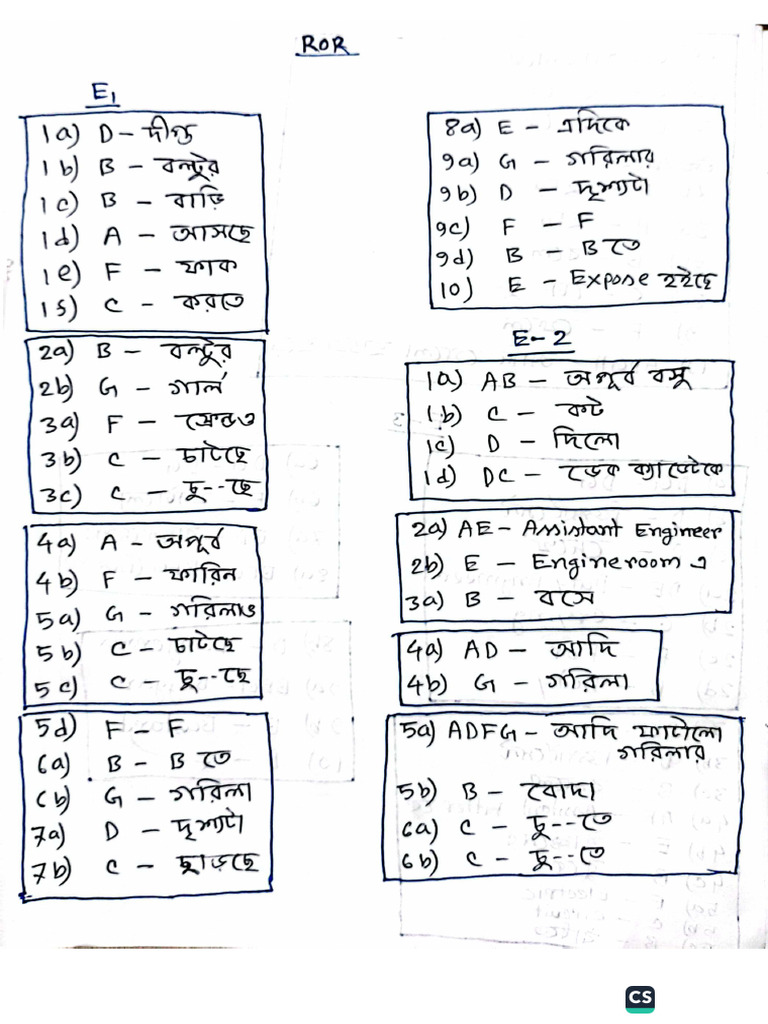 ROR
E1
1a) D – দীপ্ত
1b) B – বল্টুর
1c) B – বাড়ি
1d) A – আসছে
1e) F – ফাক
1f) C – করতে
2a) B – বল্টুর
2b) G – গার্ল
3a) F – ফ্রেন্ডও
3b) C – চাটছে
3c) C – চু--ছে
4a) A – অপূর্ব
4b) F – ফারিন
5a) G – গরিলাও
5b) C – চাটছে
5c) C – চু--ছে
5d) F – F
6a) B – B তে
6b) G – গরিলা
7a) D – দৃশ্যটা
7b) C – ছাড়ছে
8a) E – এদিকে
9a) G – গরিলার
9b) D – দৃশ্যটা
9c) F – F
9d) B – B তে
10) E – Expose হইছে
E-2
1a) AB – অপূর্ব বসু
1b) C – কট
1c) D – দিলো
1d) DC – ডেক ক্যাডেটকে
2a) AE – Assistant Engineer
2b) E – Engineroom এ
3a) B – বসে
4a) AD – আদি
4b) G – গরিলা
5a) ADFG – আদি ফাটালো
গরিলার
5b) B – বোদা
6a) C – চু--তে
6b) C – চু--তে
CS